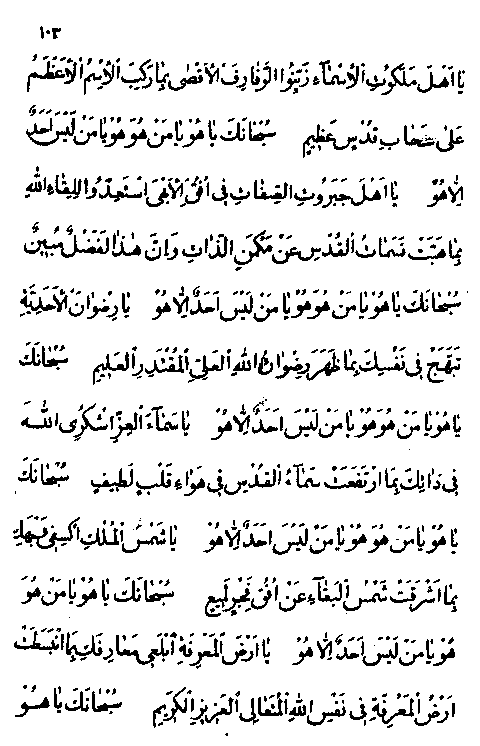 ١٠٣
يا اَهْلَ مَلَكُوتِ الْاَسْمآءِ زَيِّنُوا الرَّفارِفَ الْاَقْصى بِما رَكِبَ الْاِسْمُ الْاَعْظَمُ
عَلى سَحابِ قُدْسٍ عَظيمٍ سُبْحانَكَ يا هُوَ يا مَنْ هُوَ هُوَ يا مَنْ لَيْسَ اَحَدٌ
اِلّا هُوَ يا اَهْلَ جَبَرُوتِ الصِّفاتِ فى اُفُقِ الْاَبْهى اسْتَعِدُّوا لِلِقاءِ اللهِ
بِما هَبَّتْ نَسَماتُ الْقُدْسِ عَنْ مَكْمَنِ الذّاتِ وَ اِنَّ هٰذا لَفَضْلٌ مُبينٌ
سُبْحانَكَ يا هُوَ يا مَنْ هُوَ هُوَ يا مَنْ لَيْسَ اَحَدٌ اِلّا هُوَ يا رِضْوانَ الْاَحَدِيَّةِ
تَبَهَّجْ فى نَفْسِكَ بِما ظَهَرَ رِضْوانُ اللهِ الْعَلِىِّ الْمُقْتَدِرِ الْعَليمِ سُبْحانَكَ
يا هُوَ يا مَنْ هُوَ هُوَ يا مَنْ لَيْسَ اَحَدٌ اِلّا هُوَ يا سَمآءَ الْعِزِّ اشْكُرِى اللهَ
فى ذاتِكِ بِما ارْتَفَعَتْ سَمآءُ الْقُدْسِ فى هَواءِ قَلْبٍ لَطيفٍ سُبْحانَكَ
يا هُوَ يا مَنْ هُوَ هُوَ يا مَنْ لَيْسَ اَحَدٌ اِلّا هُوَ يا شَمْسَ الْمُلْكِ اكْسِفى وَجْهَكِ
بِما اَشْرَقَتْ شَمْسُ الْبَقآءِ عَنْ اُفُقِ فَجْرٍ لَميعٍ سُبْحانَكَ يا هُوَ يا مَنْ هُوَ
هُوَ يا مَنْ لَيْسَ اَحَدٌ اِلّا هُوَ يا اَرْضَ الْمَعْرِفَةِ ابْلَعى مَعارِفَكِ بِما انْبَسَطَتْ
اَرْضُ الْمَعْرِفَةِ فى نَفْسِ اللهِ الْمُتَعالِى الْعَزيزِ الْكَريمِ سُبْحانَكَ يا هُوَ